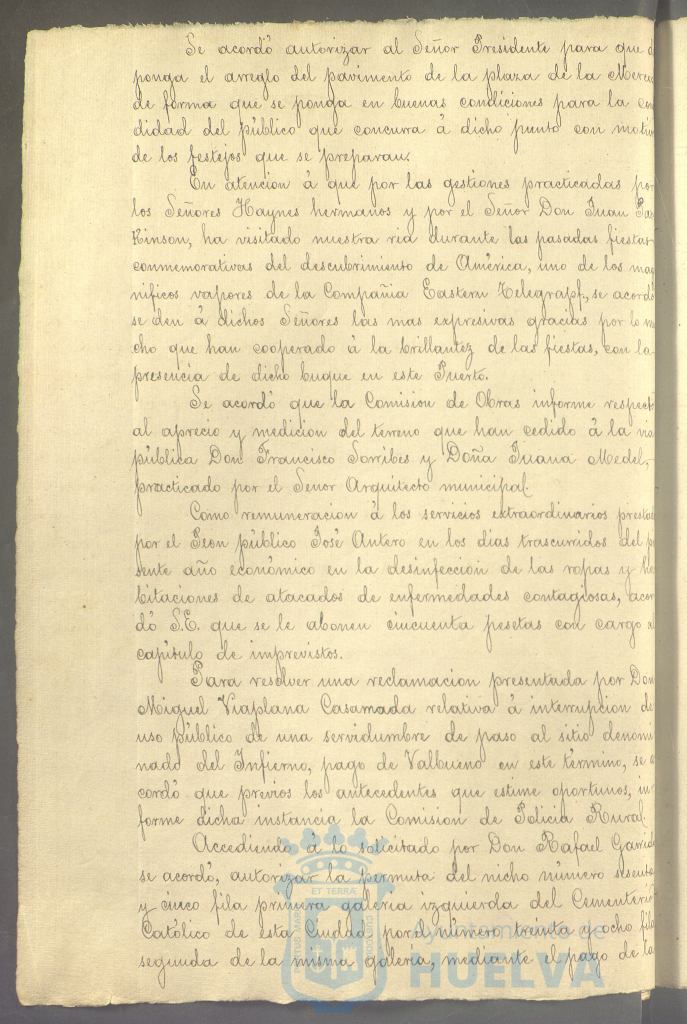 Se acordó autorizar al Señor Presidente para que
ponga el arreglo del pavimento de la plaza de la Merce
de forma que se ponga en buenas condiciones para la co
didad del público que concurra á dicho punto con motiv
de los festejos que se preparan.
En atencion á que por las gestiones practicadas por
los Señores Haynes hermanos y por el Señor Don Juan Par
kinson, ha visitado nuestra ria durante las pasadas fiestas
conmemorativas del descubrimiento de América, uno de los mag
nificos vapores de la Compañia Eastern Telegrapf, se acordó
se den á dichos Señores las mas expresivas gracias por lo mu
cho que han cooperado á la brillantez de las fiestas, con la
presencia de dicho buque en este Puerto.
Se acordó que la Comision de Obras informe respect
al aprecio y medicion del terreno que han cedido á la via
pública Don Francisco Sorribes y Doña Juana Medel,
practicado por el Señor Arquitecto municipal.
Como remuneracion á los servicios extraordinarios presta
por el Peon público José Antero en los dias trascurridos del p
sente año económico en la desinfeccion de las ropas y ha
bitaciones de atacados de enfermedades contagiosas, acor
dó S.E. que se le abonen cincuenta pesetas con cargo a
capitulo de imprevistos.
Para resolver una reclamacion presentada por Don
Miguel Viaplana Casamada relativa á interrupcion de
uso público de una servidumbre de paso al sitio denomi
nado del Infierno, pago de Valbueno en este término, se a
cordó que previos los antecedentes que estime oportunos, in
forme dicha instancia la Comision de Policia Rural.
Accediendo á lo solicitado por Don Rafael Garrid
se acordó, autorizar la permuta del nicho número sesenta
y cinco fila primera galeria izquierda del Cementerio
Católico de esta Ciudad por el número treinta y ocho fila
segunda de la misma galeria, mediante el pago de la
ET TERRÆ
PORTUS MARIS
CUSTODIA
Ayuntamiento de
HUELVA